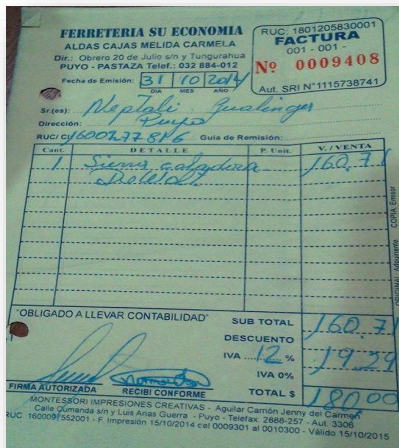 FERRETERIA SU ECONOMIA
ALDAS CAJAS MELIDA CARMELA
Dir.: Obrero 20 de Julio s/n y Tungurahua
PUYO - PASTAZA Telef.: 032 884-012
RUC: 1801205830001
FACTURA
001 - 001 -
Nº 0009408
Aut. SRI N°1115738741
Fecha de Emisión: 31 10 2014
DIA MES AÑO
Sr.(es): Neptali
Dirección: Puyo
RUC/CI Guia de Remisión:
Cant. DETALLE P. Unit. V. / VENTA
1 Sierra caladora 160.71
DeWalt
"OBLIGADO A LLEVAR CONTABILIDAD"
SUB TOTAL 160.71
DESCUENTO
IVA 12 % 19.29
IVA 0%
TOTAL $ 180.00
FIRMA AUTORIZADA RECIBI CONFORME
MONTESSORI IMPRESIONES CREATIVAS - Aguilar Carrión Jenny del Carmen
Calle Qumanda s/n y Luis Arias Guerra - Puyo - Telefax: 2688-257 - Aut. 3306
RUC: 1600091552001 - F. Impresión 15/10/2014 cel 0009301 al 0010300 - Válido 15/10/2015